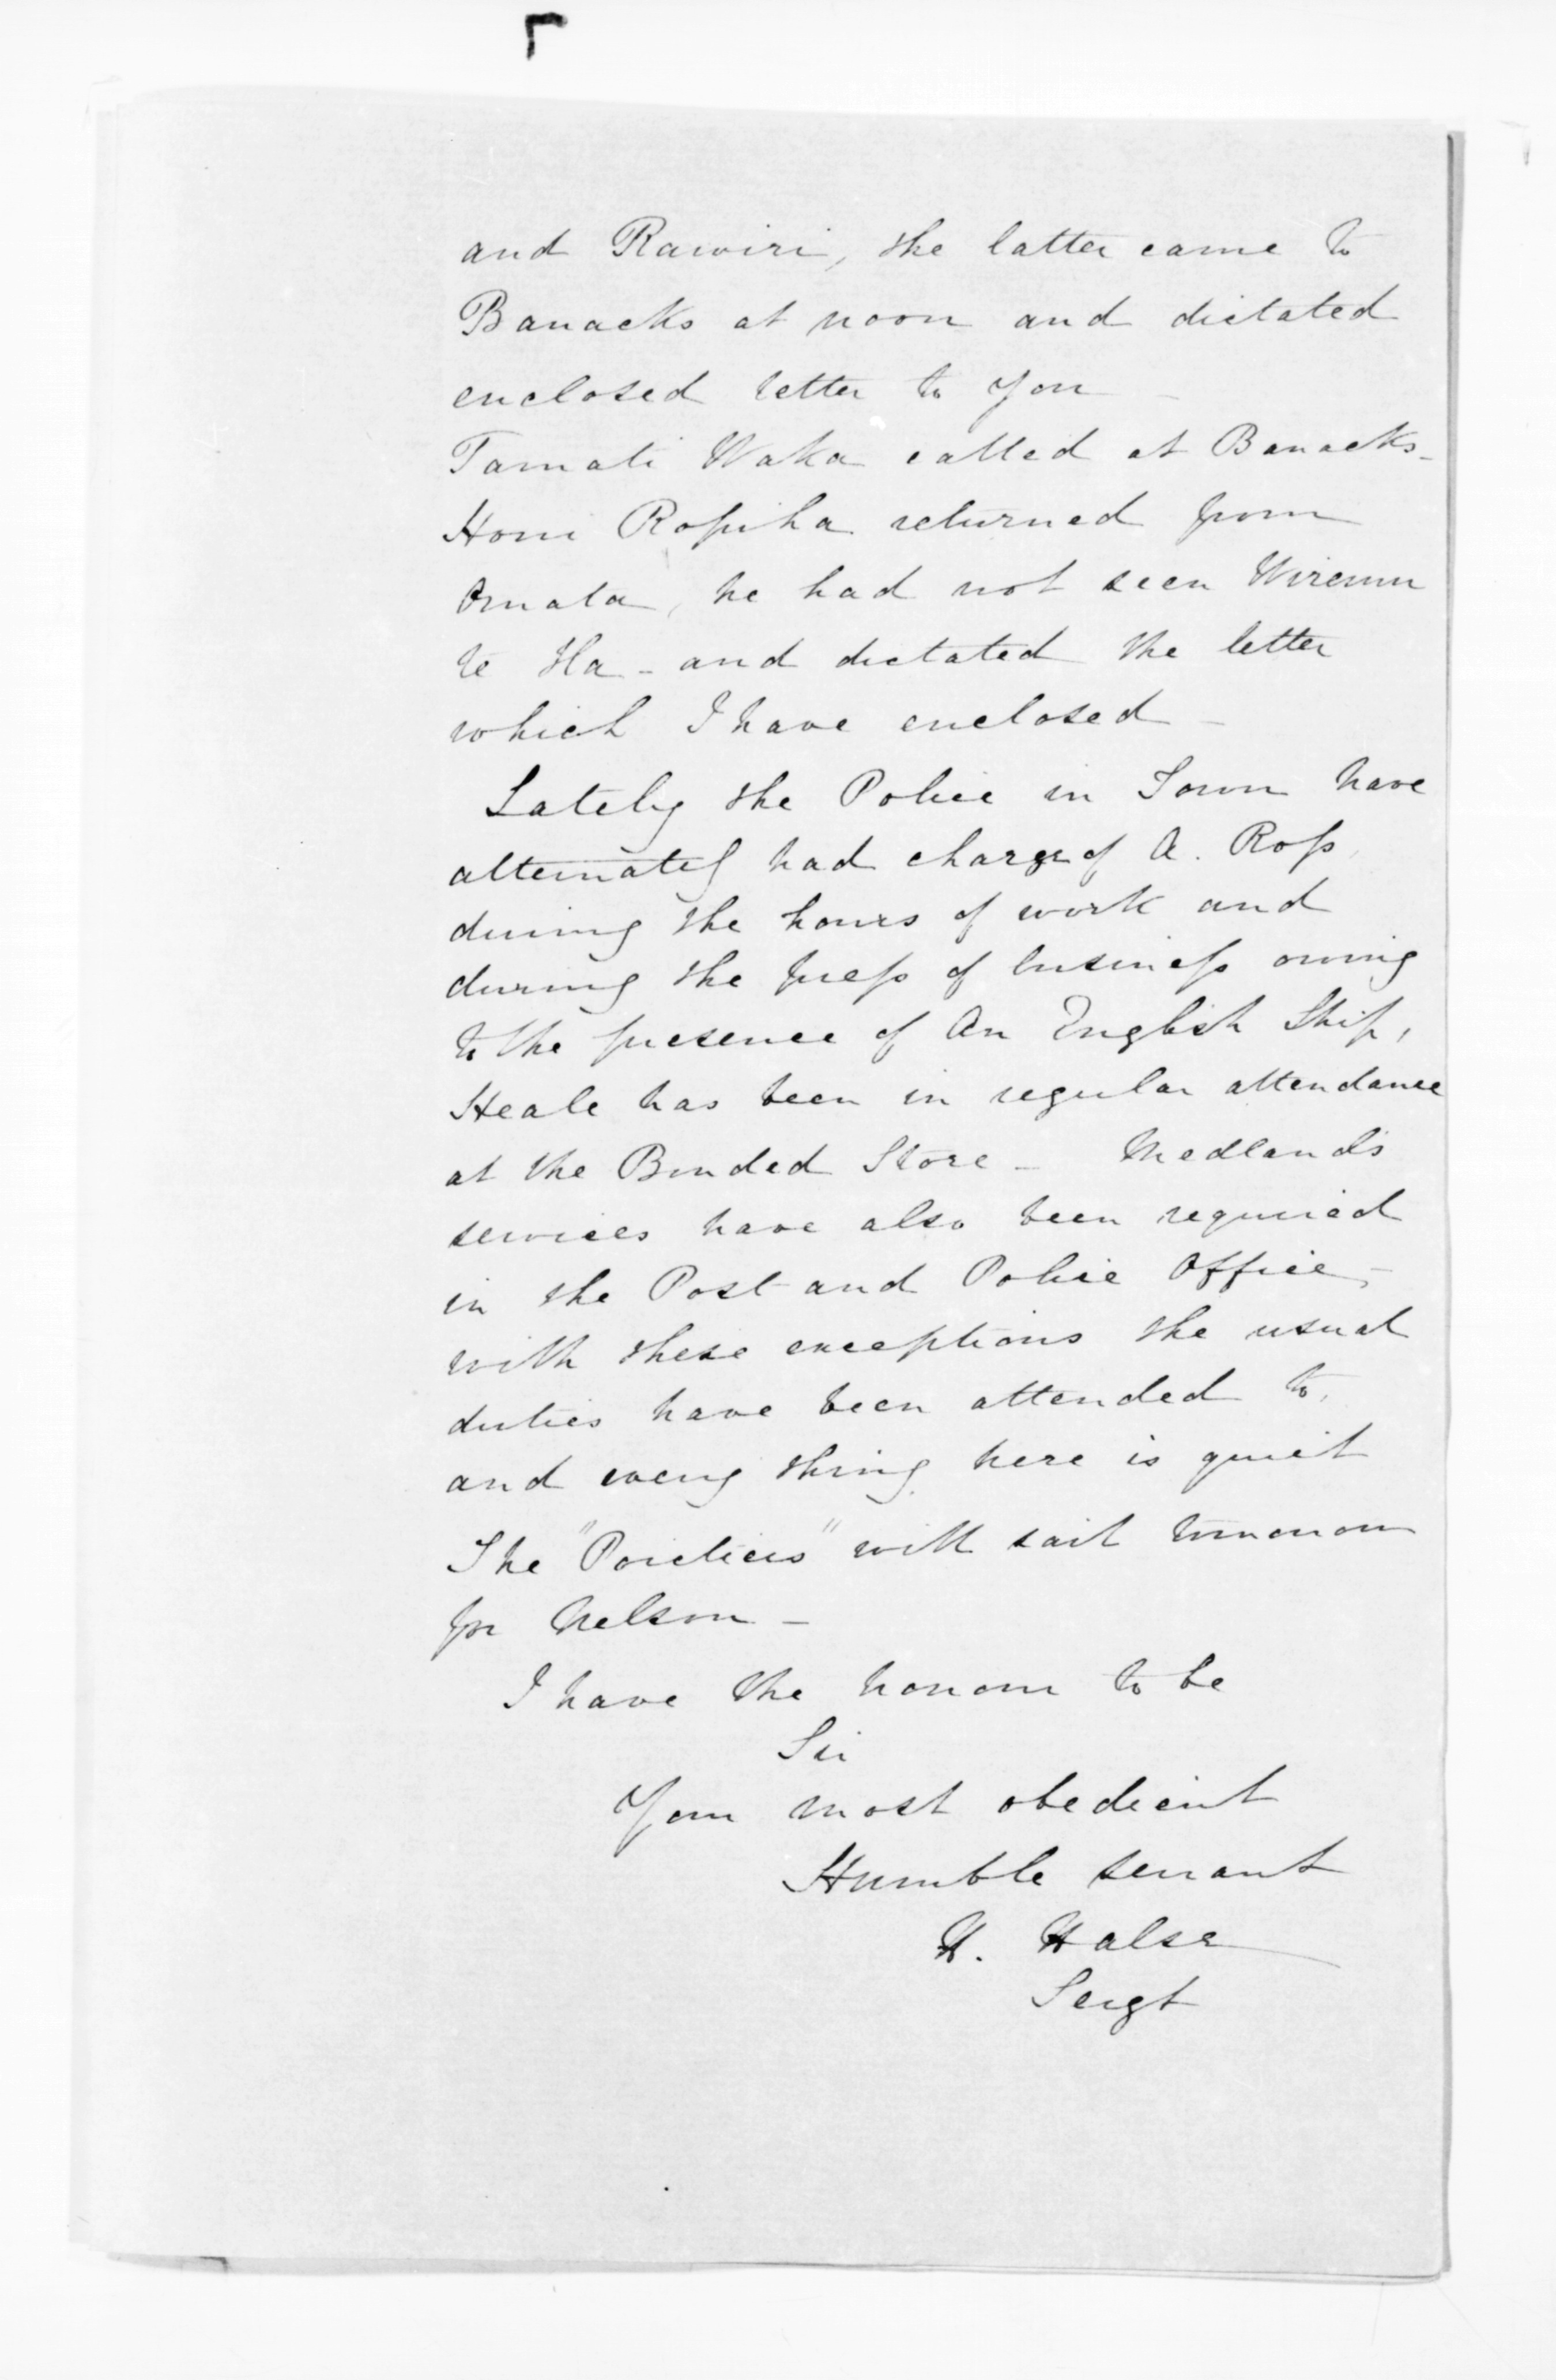 and Rawiri, the latter came to
Banacks at noon and dictated
enclosed letter to you –
Tamati Waka called at Banacks –
Honi Ropiha returned from
Omata, he had not seen Wiremu
te Ha – and dictated the letter
which I have enclosed –
Lately the Police in Town have
alternately had charge of A. Ross
during the hours of work and
during the press of business owing
to the presence of An English Ship,
Heale has been in regular attendance
at the Bonded Store – Medland's
services have also been required
in the Post and Police Office –
with these exceptions the usual
duties have been attended to,
and every thing here is quiet
The "Poictiers" will sail tomorrow
for Nelson –
I have the honour to be
Sir
Your most obedient
Humble servant
H. Halse
Sergt